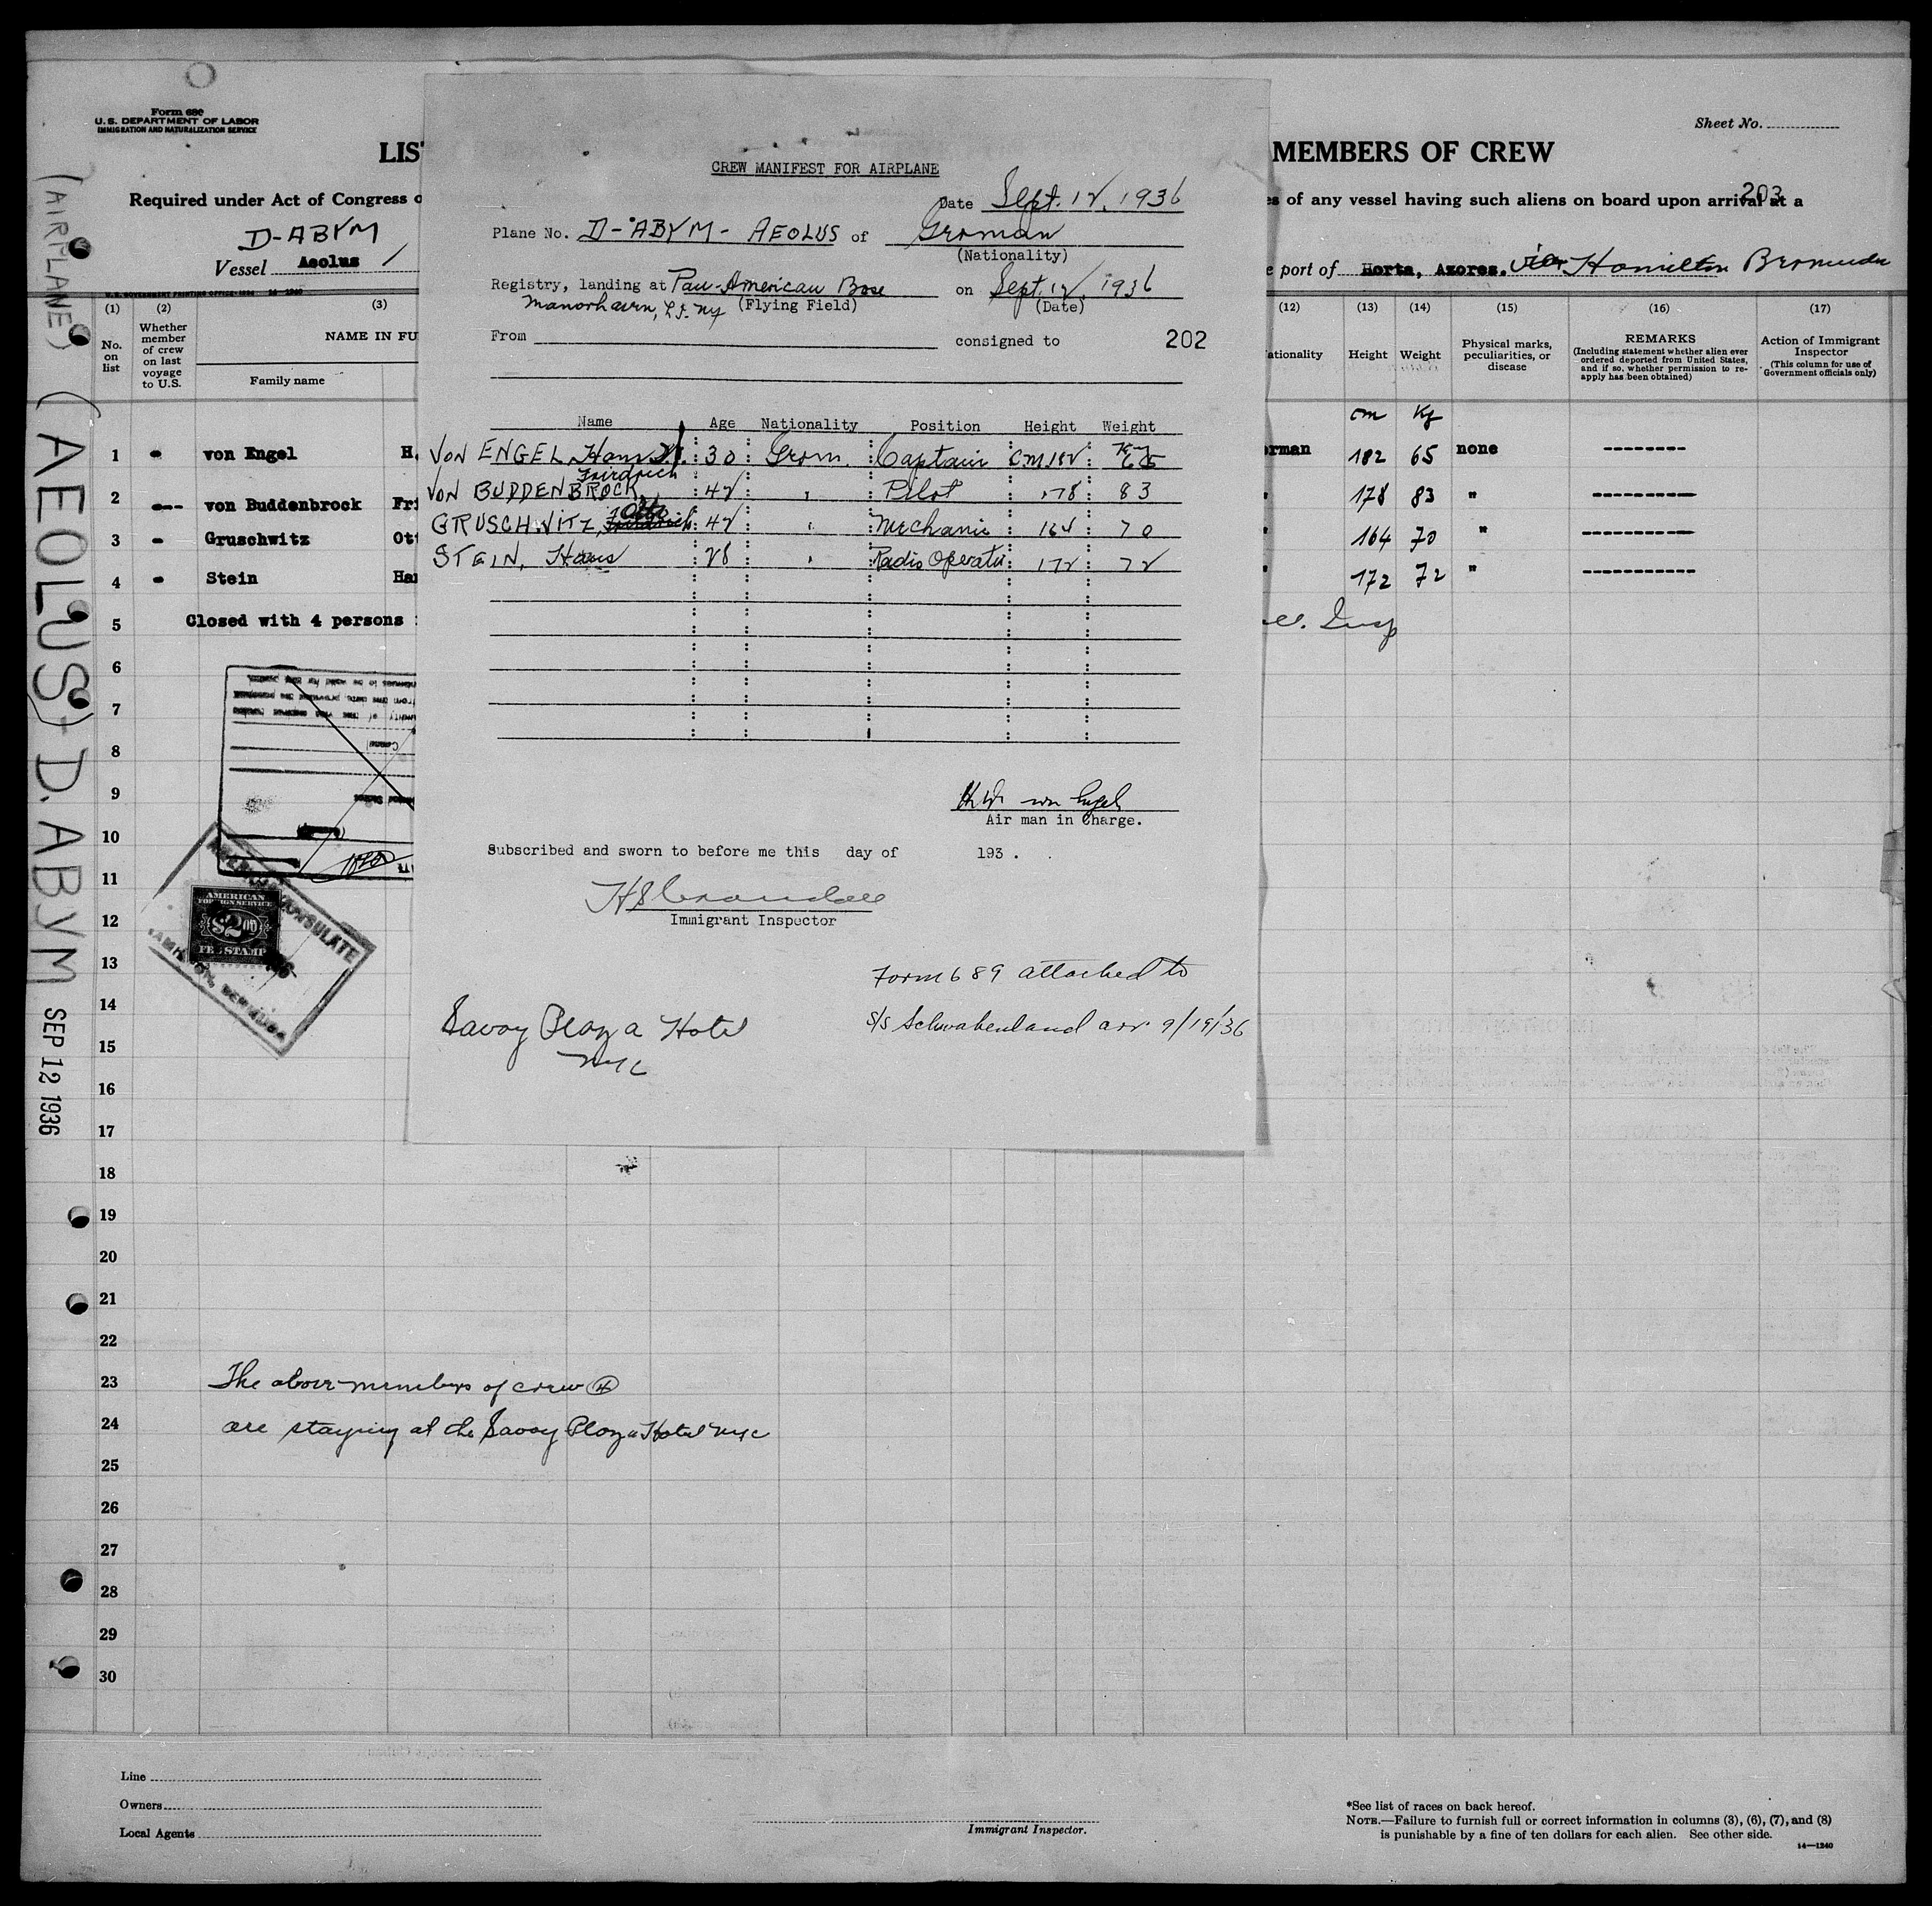 Form 680
U. S. DEPARTMENT OF LABOR
IMMIGRATION AND NATURALIZATION SERVICE
Sheet No.
LIS
MEMBERS OF CREW
Required under Act of Congress o
es of any vessel having such aliens on board upon arrival at a
203
D-ABYM
Vessel Aeolus
e port of Horta, Azores. via Hamilton Bermuda
U. S. GOVERNMENT PRINTING OFFICE: 1934 14-1240
(1) (2) (3) (12) (13) (14) (15) (16) (17)
No. on list
Whether member of crew on last voyage to U.S.
NAME IN FU
Family name
ationality
Height
Weight
Physical marks, peculiarities, or disease
REMARKS
(Including statement whether alien ever ordered deported from United States, and if so, whether permission to re-apply has been obtained)
Action of Immigrant Inspector
(This column for use of Government officials only)
cm Kg
1 - von Engel H. erman 182 65 none --------
2 --- von Buddenbrock Fri " 178 83 " ---------
3 - Gruschwitz Ott " 164 70 " ----------
4 - Stein Han " 172 72 " ----------
5 Closed with 4 persons
6
7
8
9
10
11
12
13
14
15
16
17
18
19
20
21
22
23 The above members of crew (4)
24 are staying at the Savoy Plaza Hotel NYC
25
26
27
28
29
30
CREW MANIFEST FOR AIRPLANE
Date Sept. 12, 1936
Plane No. D-ABYM- AEOLUS of German
(Nationality)
Registry, landing at Pan-American Base on Sept. 12, 1936
Manorhaven, L.I. NY (Flying Field) (Date)
From consigned to 202
Name Age Nationality Position Height Weight
VON ENGEL, Hans W. 30 Germ. Captain cm 182 65
Friedrich
VON BUDDENBROCK, 42 " Pilot 178 83
Otto
GRUSCHWITZ, Friedrich 42 " Mechanic 164 70
STEIN, Hans 28 " Radio Operator 172 72
H.W. von Engel
Air man in Charge.
Subscribed and sworn to before me this day of 193 .
Immigrant Inspector
Form 689 attached to
S/S Schwabenland arr. 9/19/36
Savoy Plaza Hotel
NYC
AMERICAN CONSULATE
HAMILTON, BERMUDA
AMERICAN
FOREIGN SERVICE
$2.00
FEE STAMP
(AIRPLANE) (AEOLUS) D. ABYM SEP 12 1936
Line
Owners
Local Agents
Immigrant Inspector.
*See list of races on back hereof.
NOTE.—Failure to furnish full or correct information in columns (3), (6), (7), and (8)
is punishable by a fine of ten dollars for each alien. See other side.
14—1240